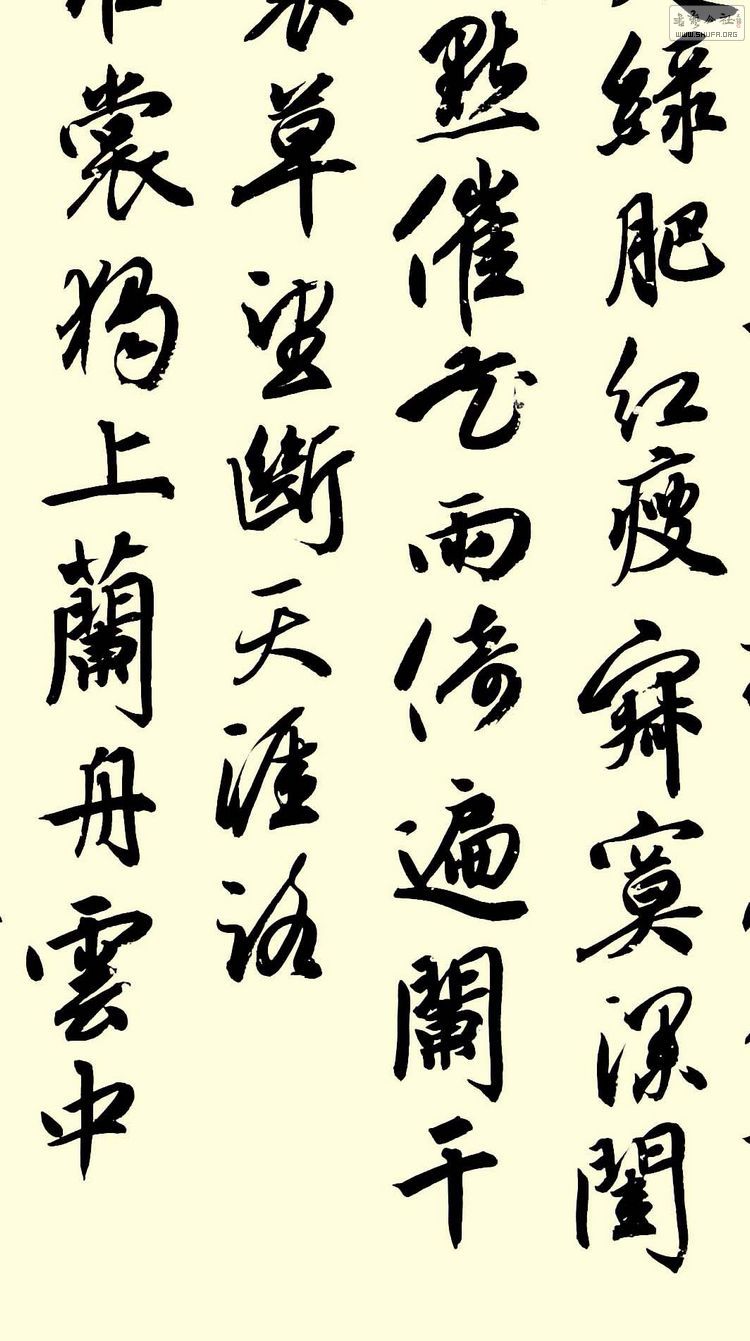 WWW.SHUFA.ORG
綠肥紅瘦寂寞深閨
點催花雨倚遍闌干
草望斷天涯路
裳獨上蘭舟雲中